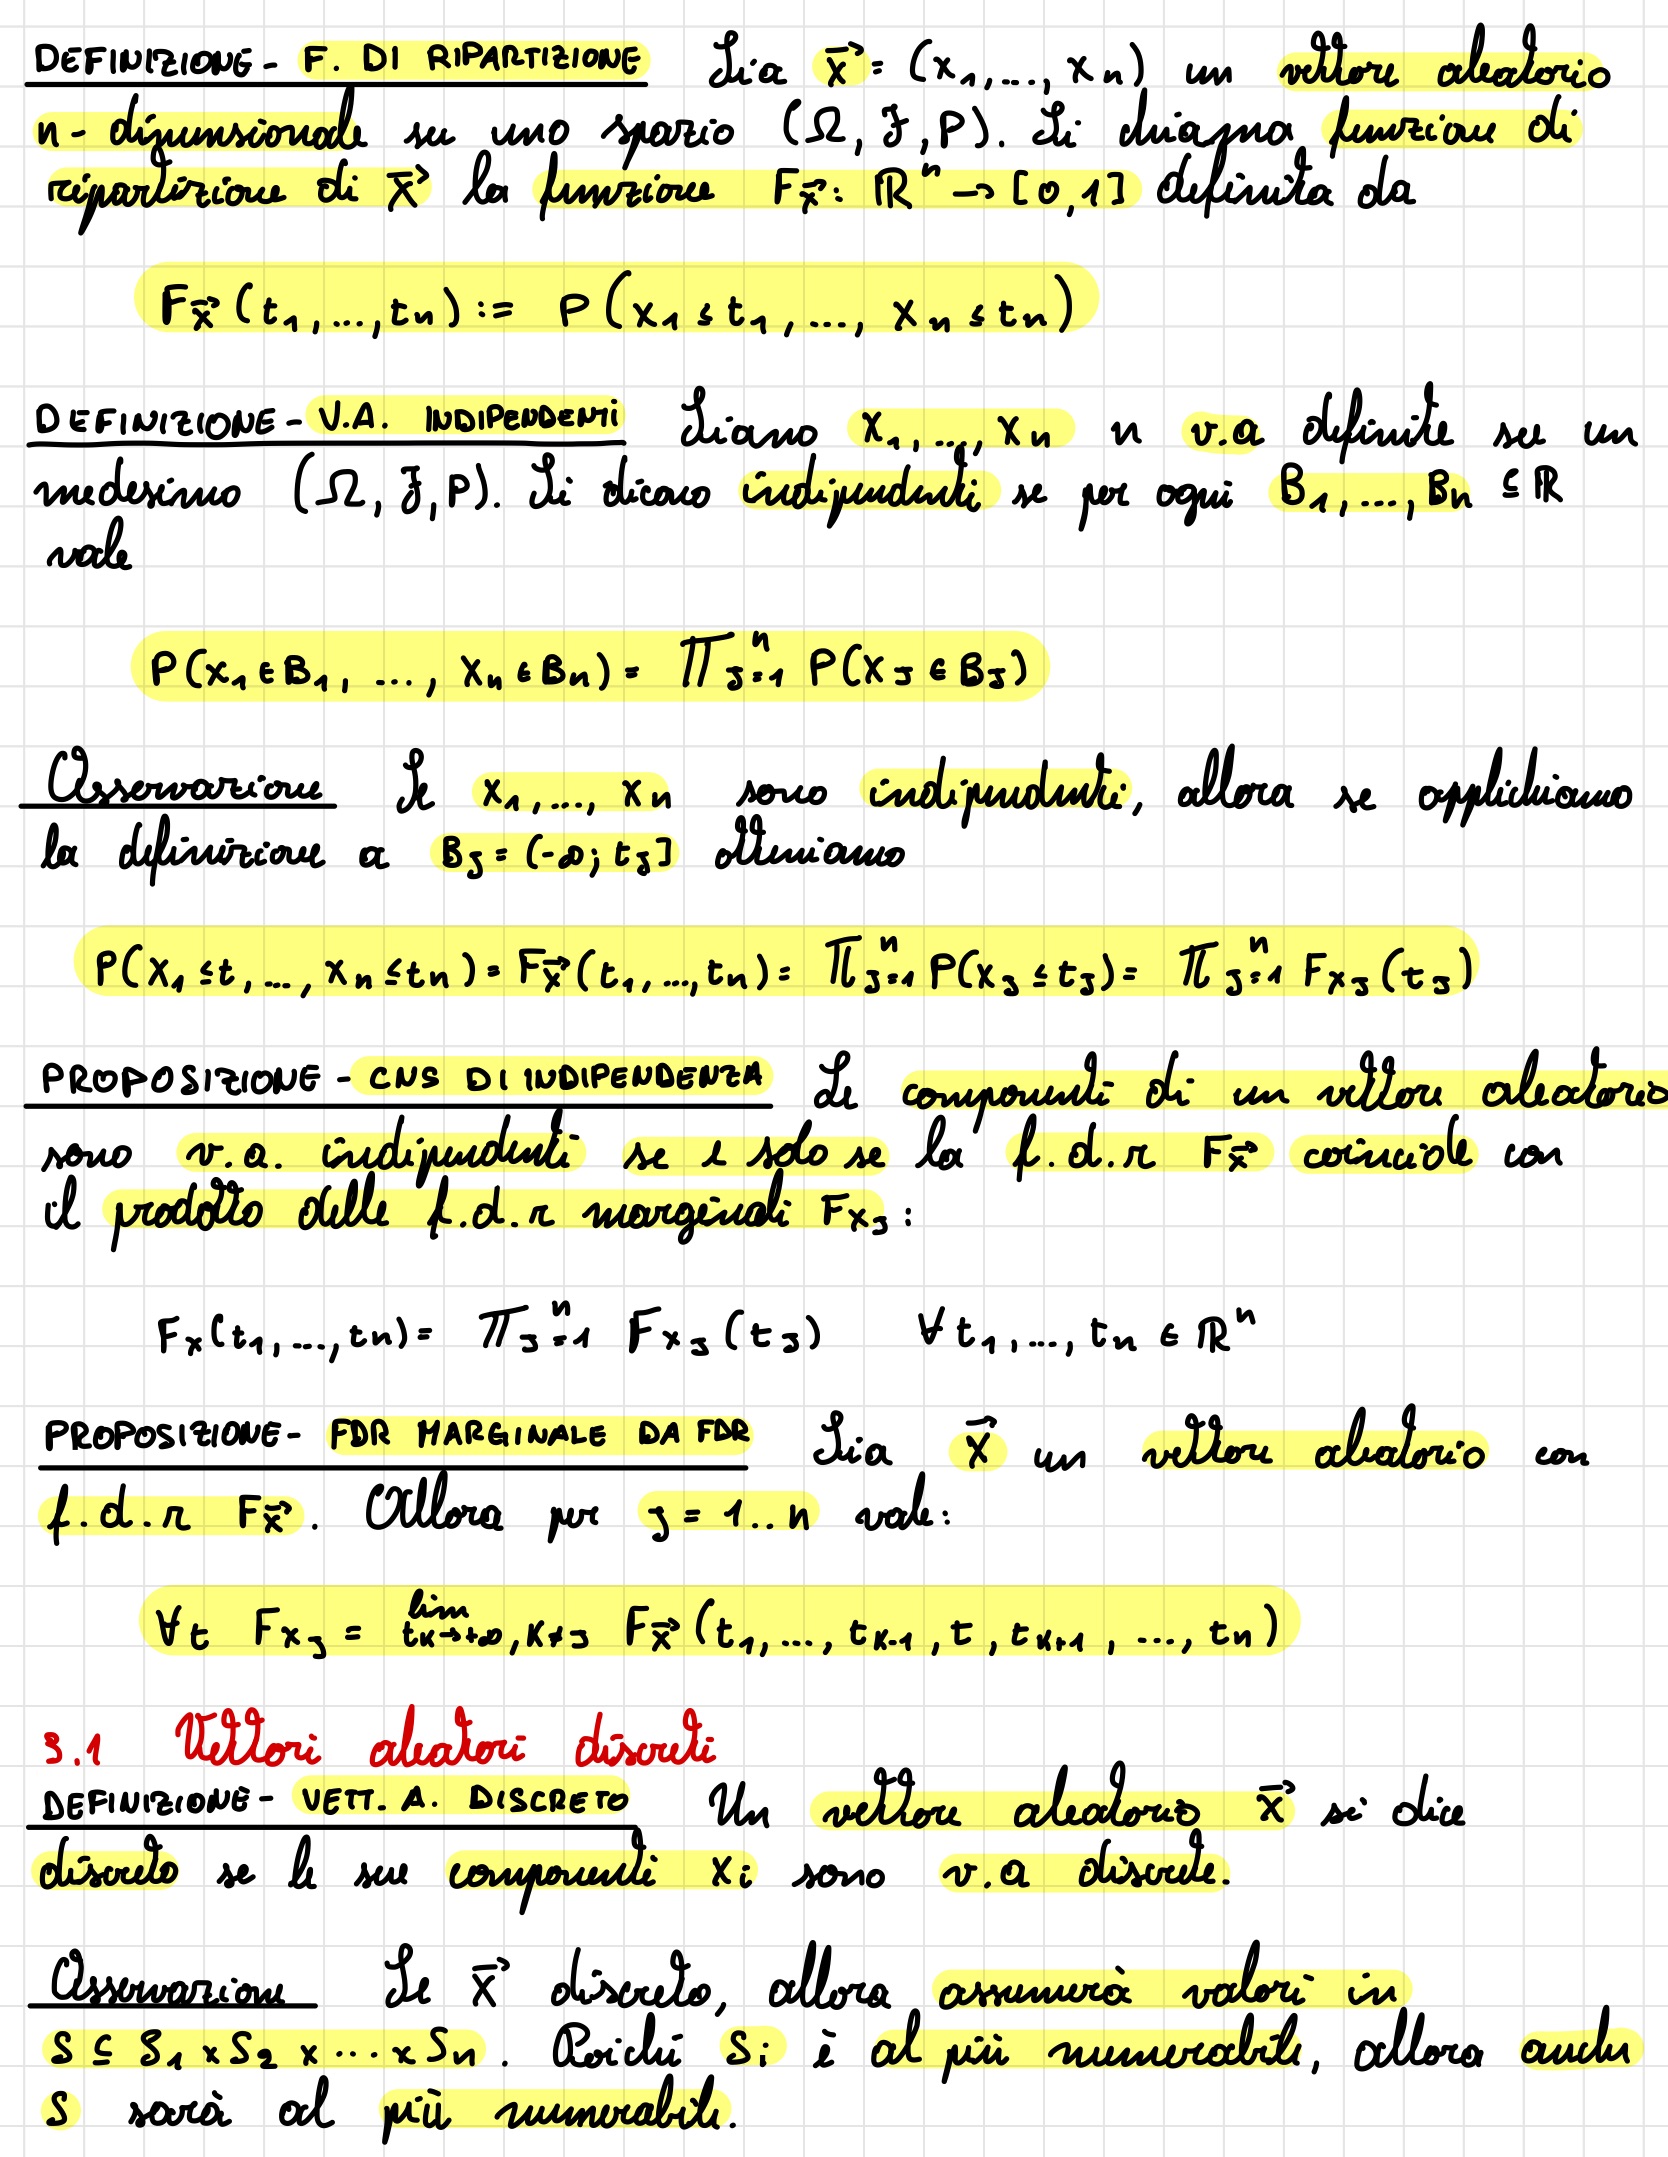 DEFINIZIONE - F. DI RIPARTIZIONE Sia X⃗ = (X₁,..., Xn) un vettore aleatorio
n-dimensionale su uno spazio (Ω, F, P). Si chiama funzione di
ripartizione di X⃗ la funzione F_X⃗ : ℝⁿ → [0,1] definita da
F_X⃗ (t₁,...,tn) := P(X₁ ≤ t₁,..., Xn ≤ tn)
DEFINIZIONE - V.A. INDIPENDENTI Siano X₁,...,Xn n v.a definite su un
medesimo (Ω, F, P). Si dicono indipendenti se per ogni B₁,...,Bn ⊆ ℝ
vale
P(X₁ ∈ B₁, ..., Xn ∈ Bn) = ∏ⁿ_J=1 P(X_J ∈ B_J)
Osservazione Se X₁,..., Xn sono indipendenti, allora se applichiamo
la definizione a B_J = (-∞; t_J] otteniamo
P(X₁ ≤ t,..., Xn ≤ tn) = F_X⃗ (t₁,...,tn) = ∏ⁿ_J=1 P(X_J ≤ t_J) = ∏ⁿ_J=1 F_X_J (t_J)
PROPOSIZIONE - CNS DI INDIPENDENZA Le componenti di un vettore aleatorio
sono v.a. indipendenti se e solo se la f.d.r F_X⃗ coincide con
il prodotto delle f.d.r marginali F_X_J :
F_X(t₁,...,tn) = ∏ⁿ_J=1 F_X_J (t_J) ∀ t₁,..., tn ∈ ℝⁿ
PROPOSIZIONE - FDR MARGINALE DA FDR Sia X⃗ un vettore aleatorio con
f.d.r F_X⃗ . Allora per J = 1..n vale:
∀t F_X_J = lim t_K→+∞, K≠J F_X⃗ (t₁,..., t_K-1, t, t_K+1, ..., tn)
3.1 Vettori aleatori discreti
DEFINIZIONE - VETT. A. DISCRETO Un vettore aleatorio X⃗ si dice
discreto se le sue componenti Xi sono v.a discrete.
Osservazione Se X⃗ discreto, allora assumerà valori in
S ⊆ S₁ x S₂ x ... x Sn . Poiché Si è al più numerabile, allora anche
S sarà al più numerabile.